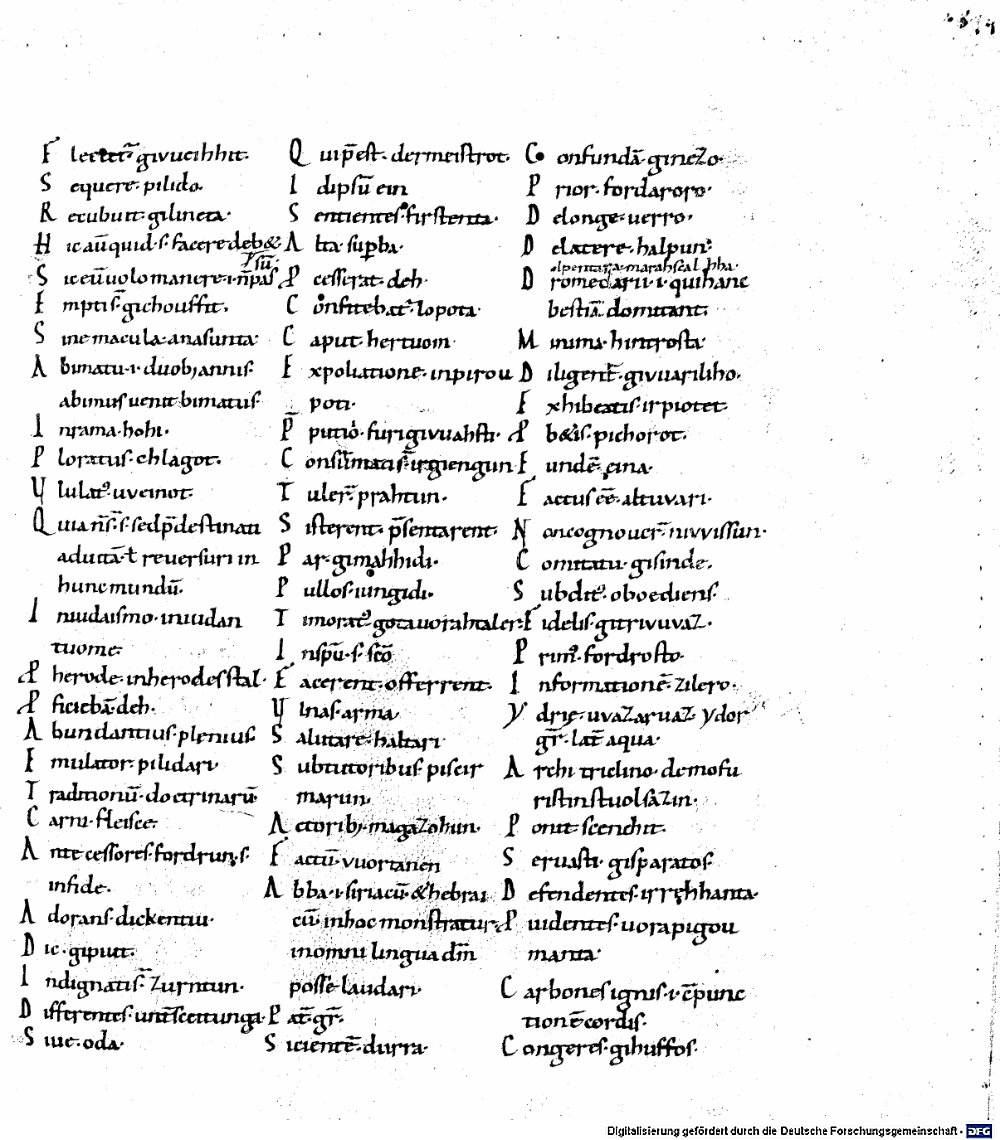 Flectetur̄·givucihhit·
Sequere·pilido·
Recubuit·gilineta·
Hic aūt quid·ſ·facere deb&
Sic eū uolo manere·ı·n̄ paſ
ſū·
Emptiſ·gichouffit·
Sine macula·anaſunta·
A bimatu·ı·duobꝫ anniſ·
abimuſ uenit bimatuſ·
In rama·hohi·
Ploratuſ·chlagot·
Vlulatꝰ·uveinot·
Quia n̄ſ·ſ·ſed p̄deſtinati
ad uitā·ł reuerſuri in
hunc mundū·
In iudaiſmo·iniudan
tuome·
Ꝑ herode·inherodeſſtal·
Ꝑficiebā·deh·
Abundantiuſ·pleniuſ
Emulator·pilidari
Traditionū·doctrinarū
Carni·fleiſce·
Anteceſſoreſ·fordrun·ſ·
in fide·
Adoranſ·dickentiu·
Dic·gipiut·
Indignatiſ·̄ zurntun·
Differenteſ·unt̄ſceitunga·
Siue·oda·
Qui p̄eſt·dermeiſtrot·
Id ipſū ein
Sentienteſ·firſtenta·
Alta ſuꝑba·
Ꝑceſſerat·deh·
Confitebatꝰ·lopota·
Caput·hertuom·
Expoliatione·inpirou
poti·
P̄putio·furigivuahſti·
Conſūmatiſ·̄ irgiengun
Tuler̄·prahtun·
Siſterent·p̄ſentarent·
Par·gimahhidi·
Pulloſ·iungidi·
Timoratꝰ·gotauorahtaler·
In ſpū·ſ·ſcō
Facerent·offerrent·
Vlnaſ·arma
Salutare·haltari·
Sub tutoribuſ·piſcir
marun
Actoribꝫ·magazohun·
Factū·vuortanen
Abba·ı·ſiriacū·& hebrai
cū in hoc monſtratur
in omni lingua dm̄
poſſe laudari·
Pat̄·gr̄·
Scientē·durra·
Confundā·ginezo·
Prior·fordaroro·
De longe·uerro·
De latere·halpunꝰ
olpentara·marahſcal
Dromedarii·ı·qui hanc
beſtiā domitant·
Minima·hintroſta·
Diligent̄·givuariliho·
Exhibeatiſ·irpiotet·
Ꝑb&iſ·pichorot·
Eundē·eina·
Factuſ eē·altuvari·
Non cognouer̄·nivviſſun·
Comitatu·giſinde·
Subditꝰ·oboedienſ·
Fideliſ·gitrivuvaz·
Primꝰ·fordroſto·
Informationē·zilero·
Ydrię·uvazaruaz ydor
gr̄·lat̄ aqua·
Archi triclino·demofu
riſtin ſtuolſazin·
Ponit·ſcenchit·
Seruaſti·giſparatoſ·
Defendenteſ·irręhhanta·
Ꝑuidenteſ·uorapigou
manta·
Carboneſ igniſ·ı·cp̄unc
tionē cordiſ·
Congereſ·gihuffoſ·
Digitalisierung gefördert durch die Deutsche Forschungsgemeinschaft - DFG